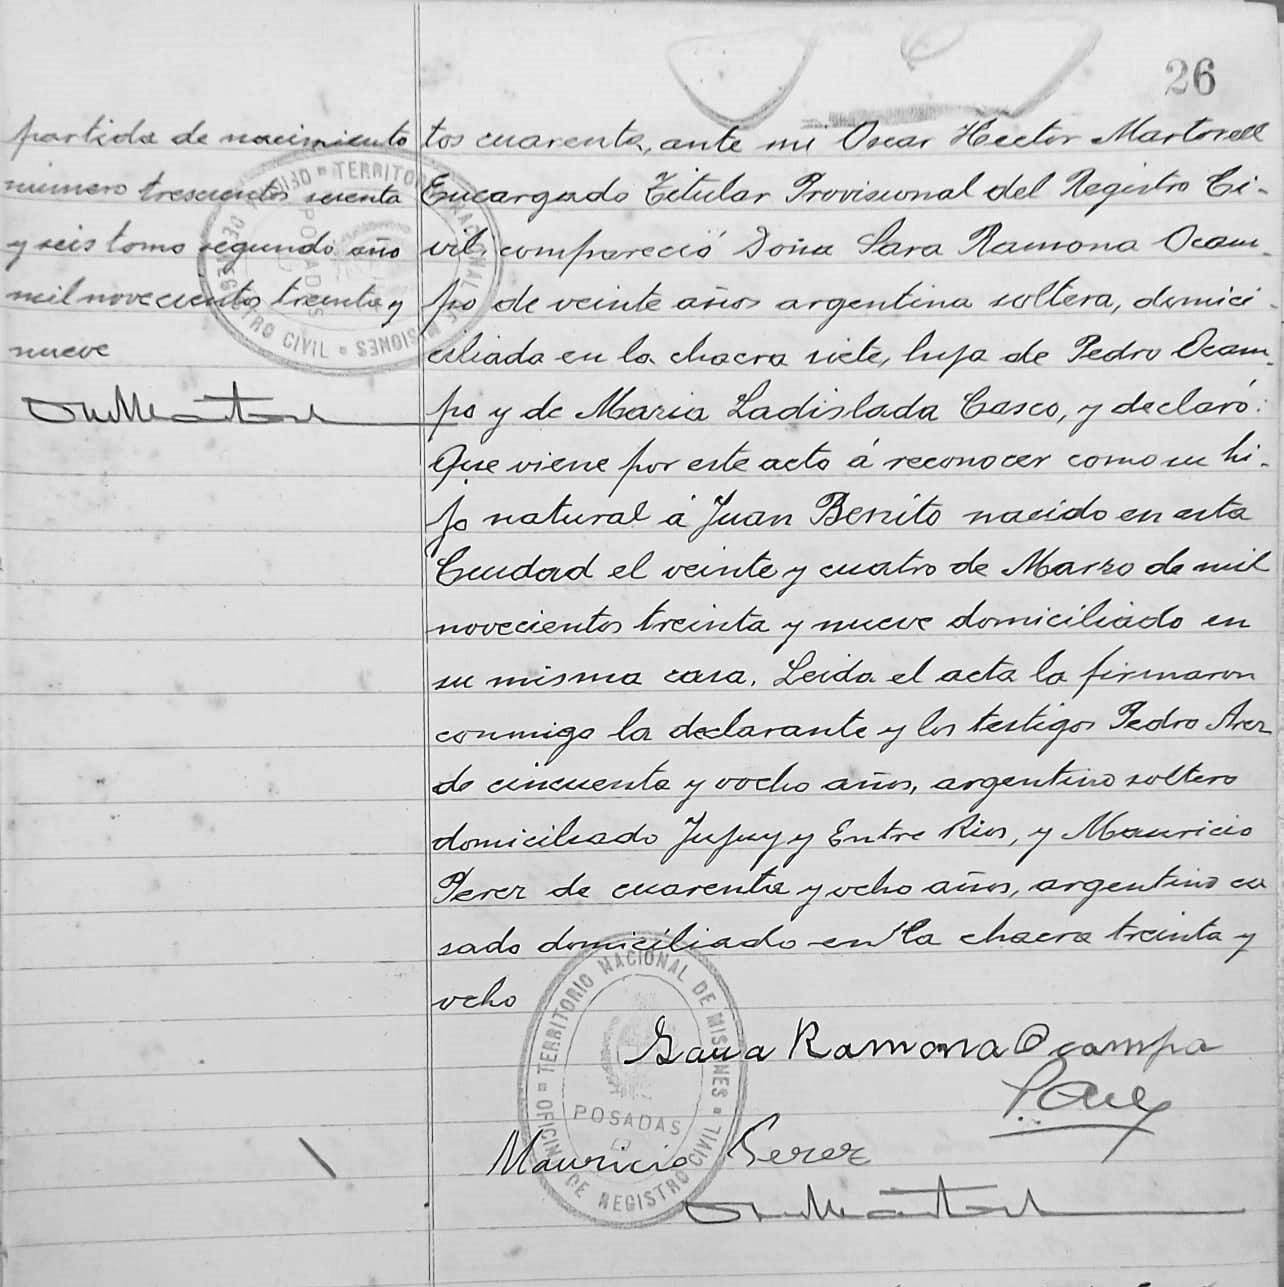 26
partida de nacimiento
número trescientos sesenta
y seis tomo segundo año
mil novecientos treinta y
nueve
tos cuarenta, ante mi Oscar Hector Martorell
Encargado Titular Provisional del Registro Ci-
vil, compareció Doña Sara Ramona Ocam-
po de veinte años argentina soltera, domici-
ciliada en la chacra siete, hija de Pedro Ocam-
po y de Maria Ladislada Casco, y declaró:
Que viene por este acto á reconocer como su hi-
jo natural á Juan Benito nacido en esta
Ciudad el veinte y cuatro de Marzo de mil
novecientos treinta y nueve domiciliado en
su misma casa. Leida el acta la firmaron
conmigo la declarante y los testigos Pedro Arez
de cincuenta y oocho años, argentino soltero
domiciliado Jujuy y Entre Rios, y Mauricio
Perez de cuarenta y ocho años, argentino ca
sado domiciliado en la chacra treinta y
ocho
Sara Ramona Ocampo
Mauricio Perez
OFICINA DE REGISTRO CIVIL TERRITORIO NACIONAL DE MISIONES
POSADAS
OFICINA DE REGISTRO CIVIL TERRITORIO NACIONAL DE MISIONES
POSADAS